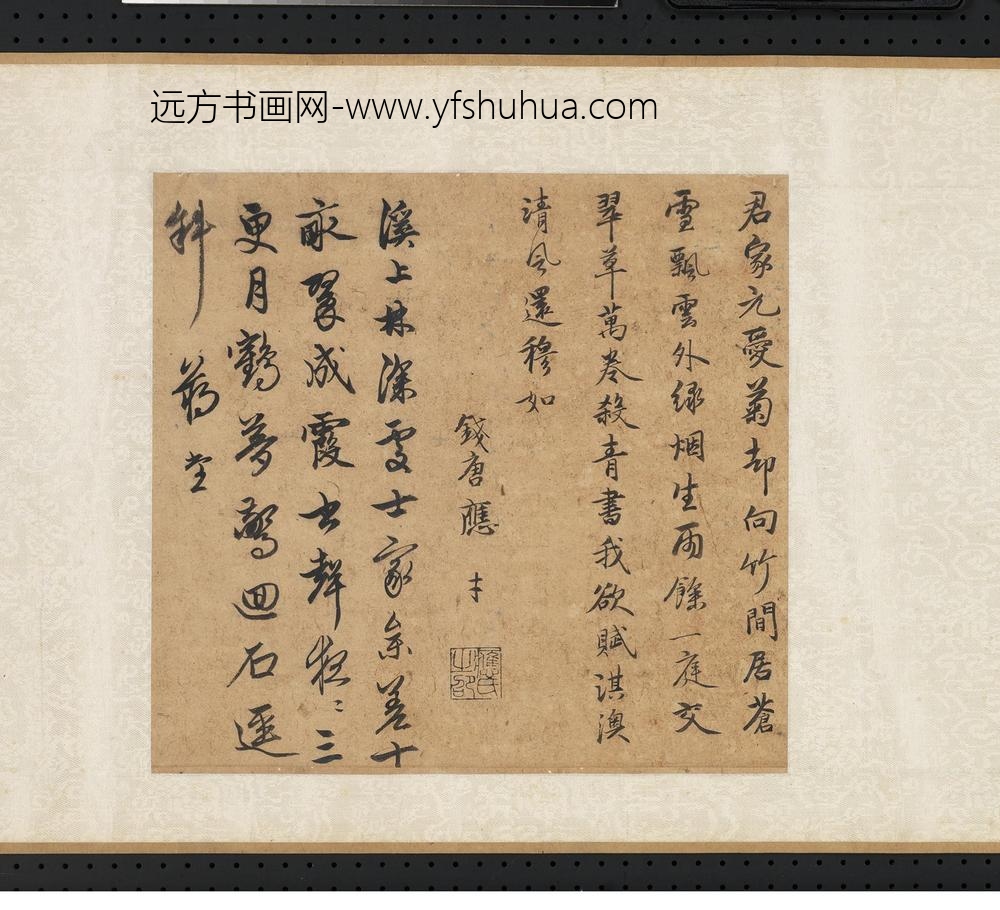 远方书画网-www.yfshuhua.com
君家元愛菊却向竹間居蒼
雪飄雲外緑烟生雨餘一庭交
翠草萬卷殺青書我欲賦淇澳
清風還穆如
錢唐應才
溪上林深處士家參差十
畝翠成霞書聲夜〻三
更月鶴夢驚回石逕
斜 蔣堂